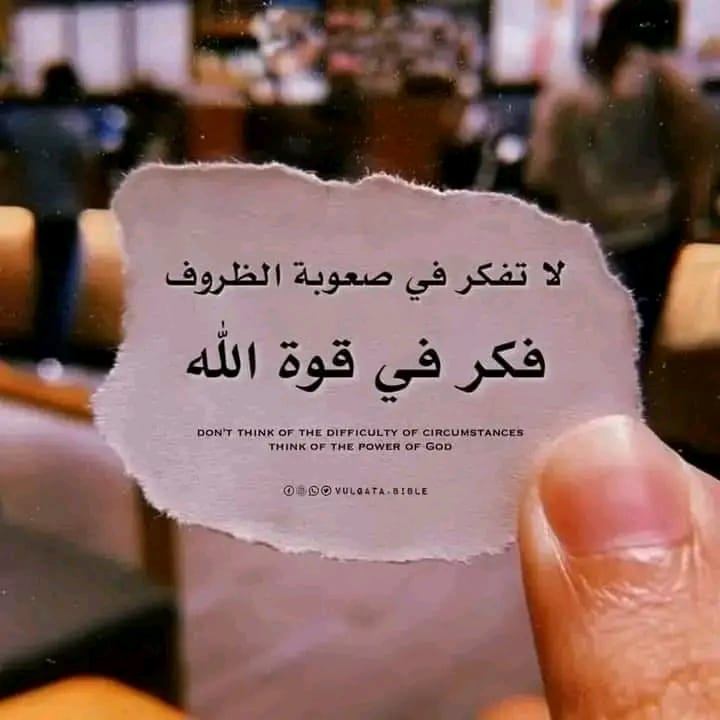 لا تفكر في صعوبة الظروف
فكر في قوة الله
DON'T THINK OF THE DIFFICULTY OF CIRCUMSTANCES
THINK OF THE POWER OF GOD
VULGATA.BIBLE